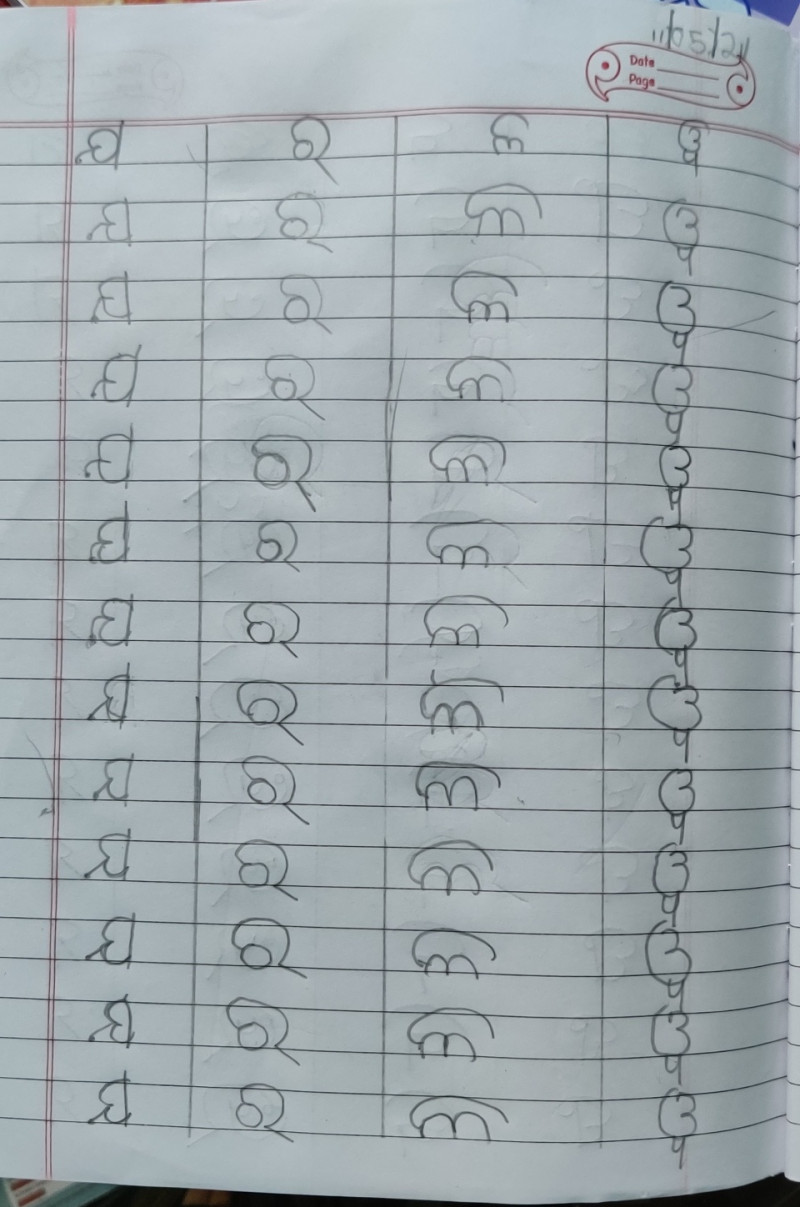 11/05/21
Date
Page
ଯ ର ଳ ୱ
ଯ ର ଳ ୱ
ଯ ର ଳ ୱ
ଯ ର ଳ ୱ
ଯ ର ଳ ୱ
ଯ ର ଳ ୱ
ଯ ର ଳ ୱ
ଯ ର ଳ ୱ
ଯ ର ଳ ୱ
ଯ ର ଳ ୱ
ଯ ର ଳ ୱ
ଯ ର ଳ ୱ
ଯ ର ଳ ୱ